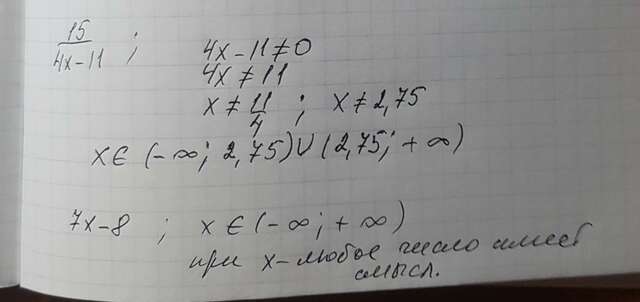 15/(4x-11) ; 4x-11≠0
4x≠11
x≠11/4 ; x≠2,75
x∈(-∞; 2,75)∪(2,75; +∞)
7x-8 ; x∈(-∞; +∞)
при x-любое число имеет
смысл.